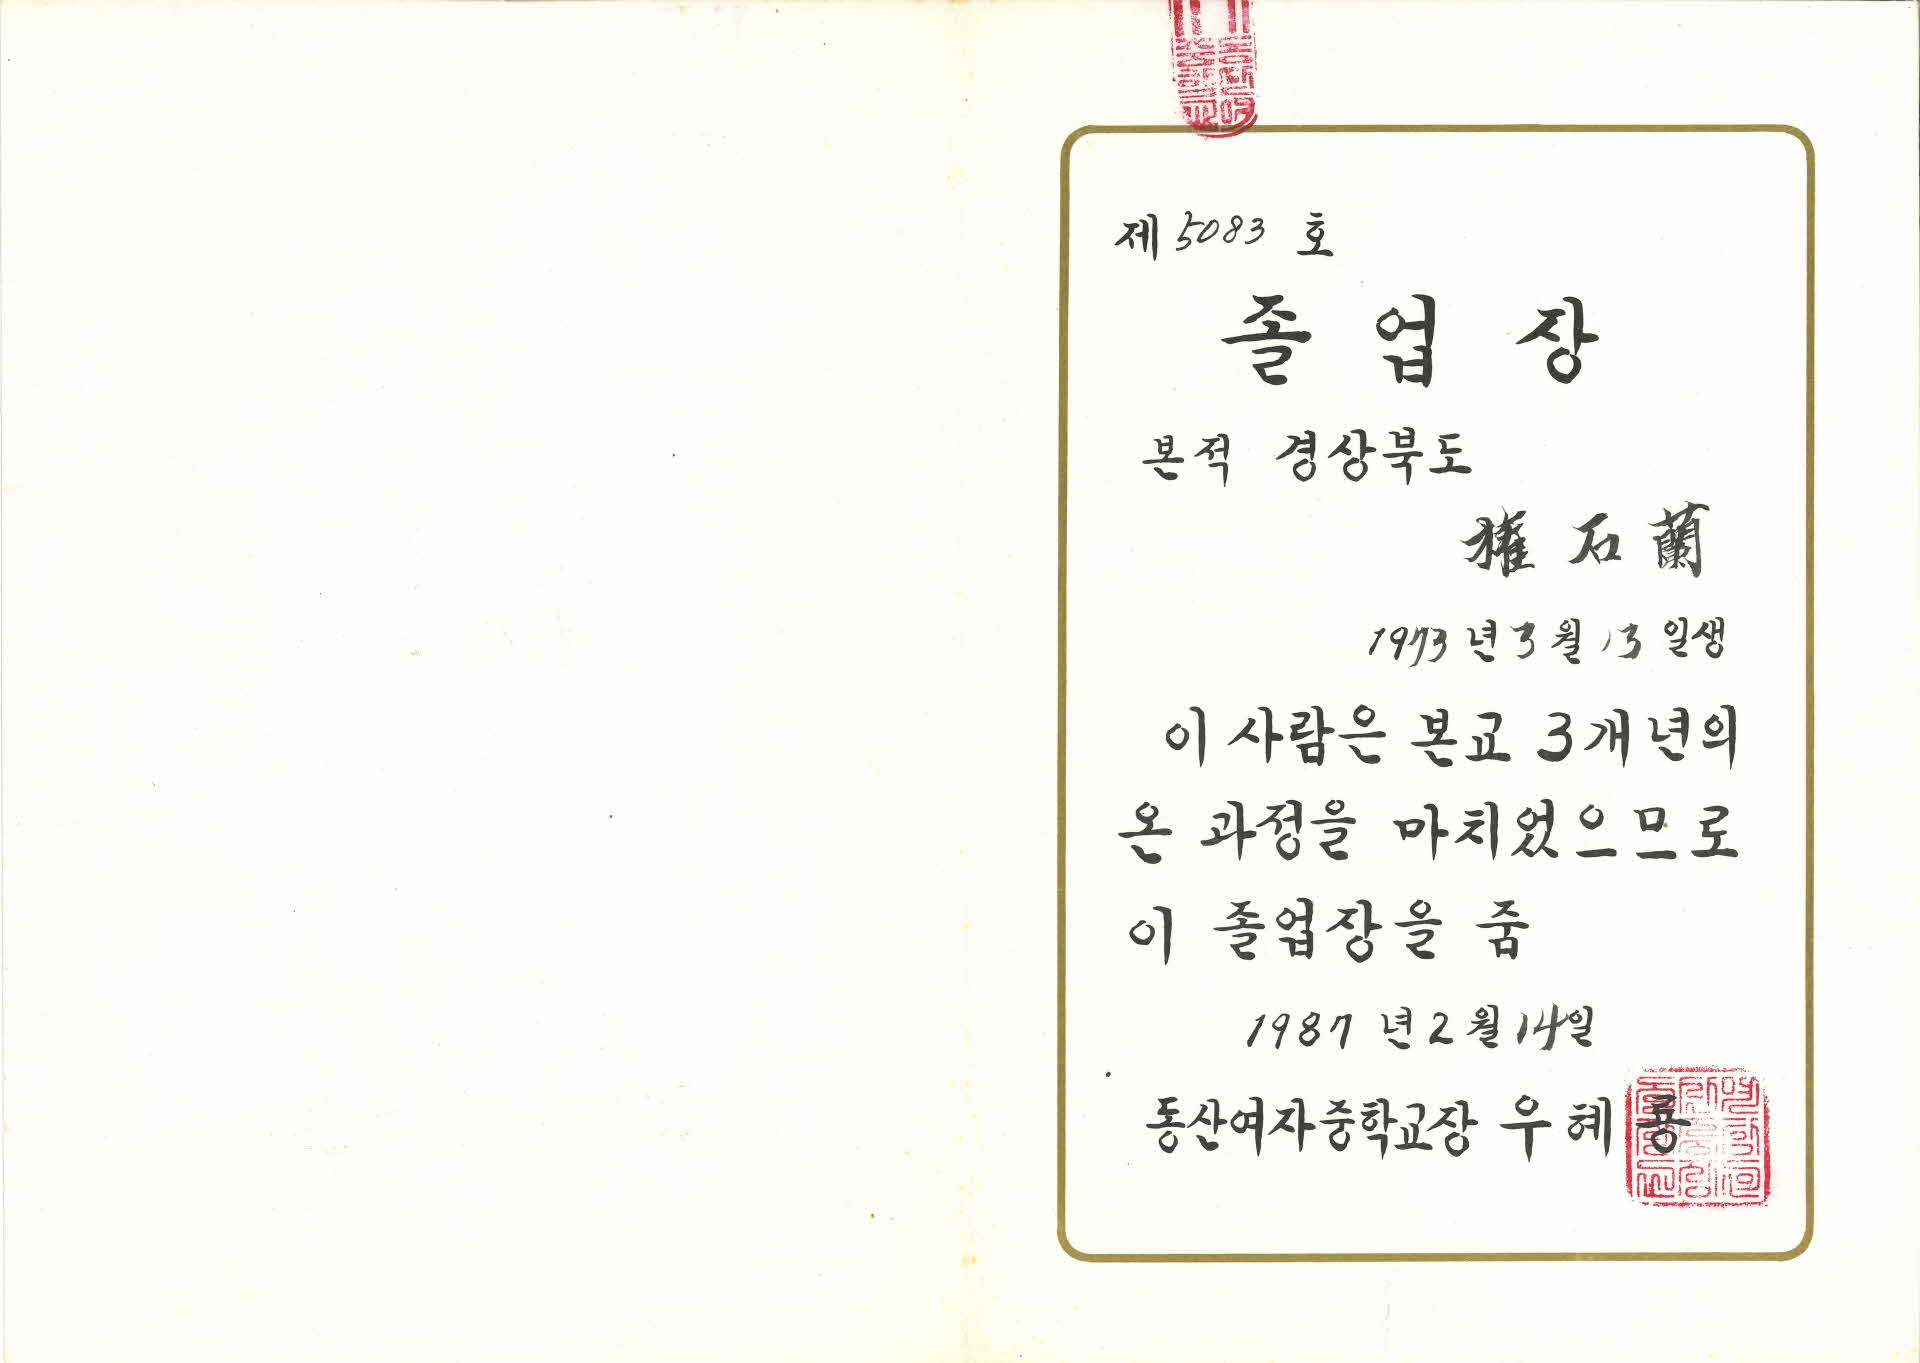 제 5083 호
졸업장
본적 경상북도
權石蘭
1973년 3월 13일생
이 사람은 본교 3개년의
온 과정을 마치었으므로
이 졸업장을 줌
1987년 2월 14일
동산여자중학교장 우혜룡